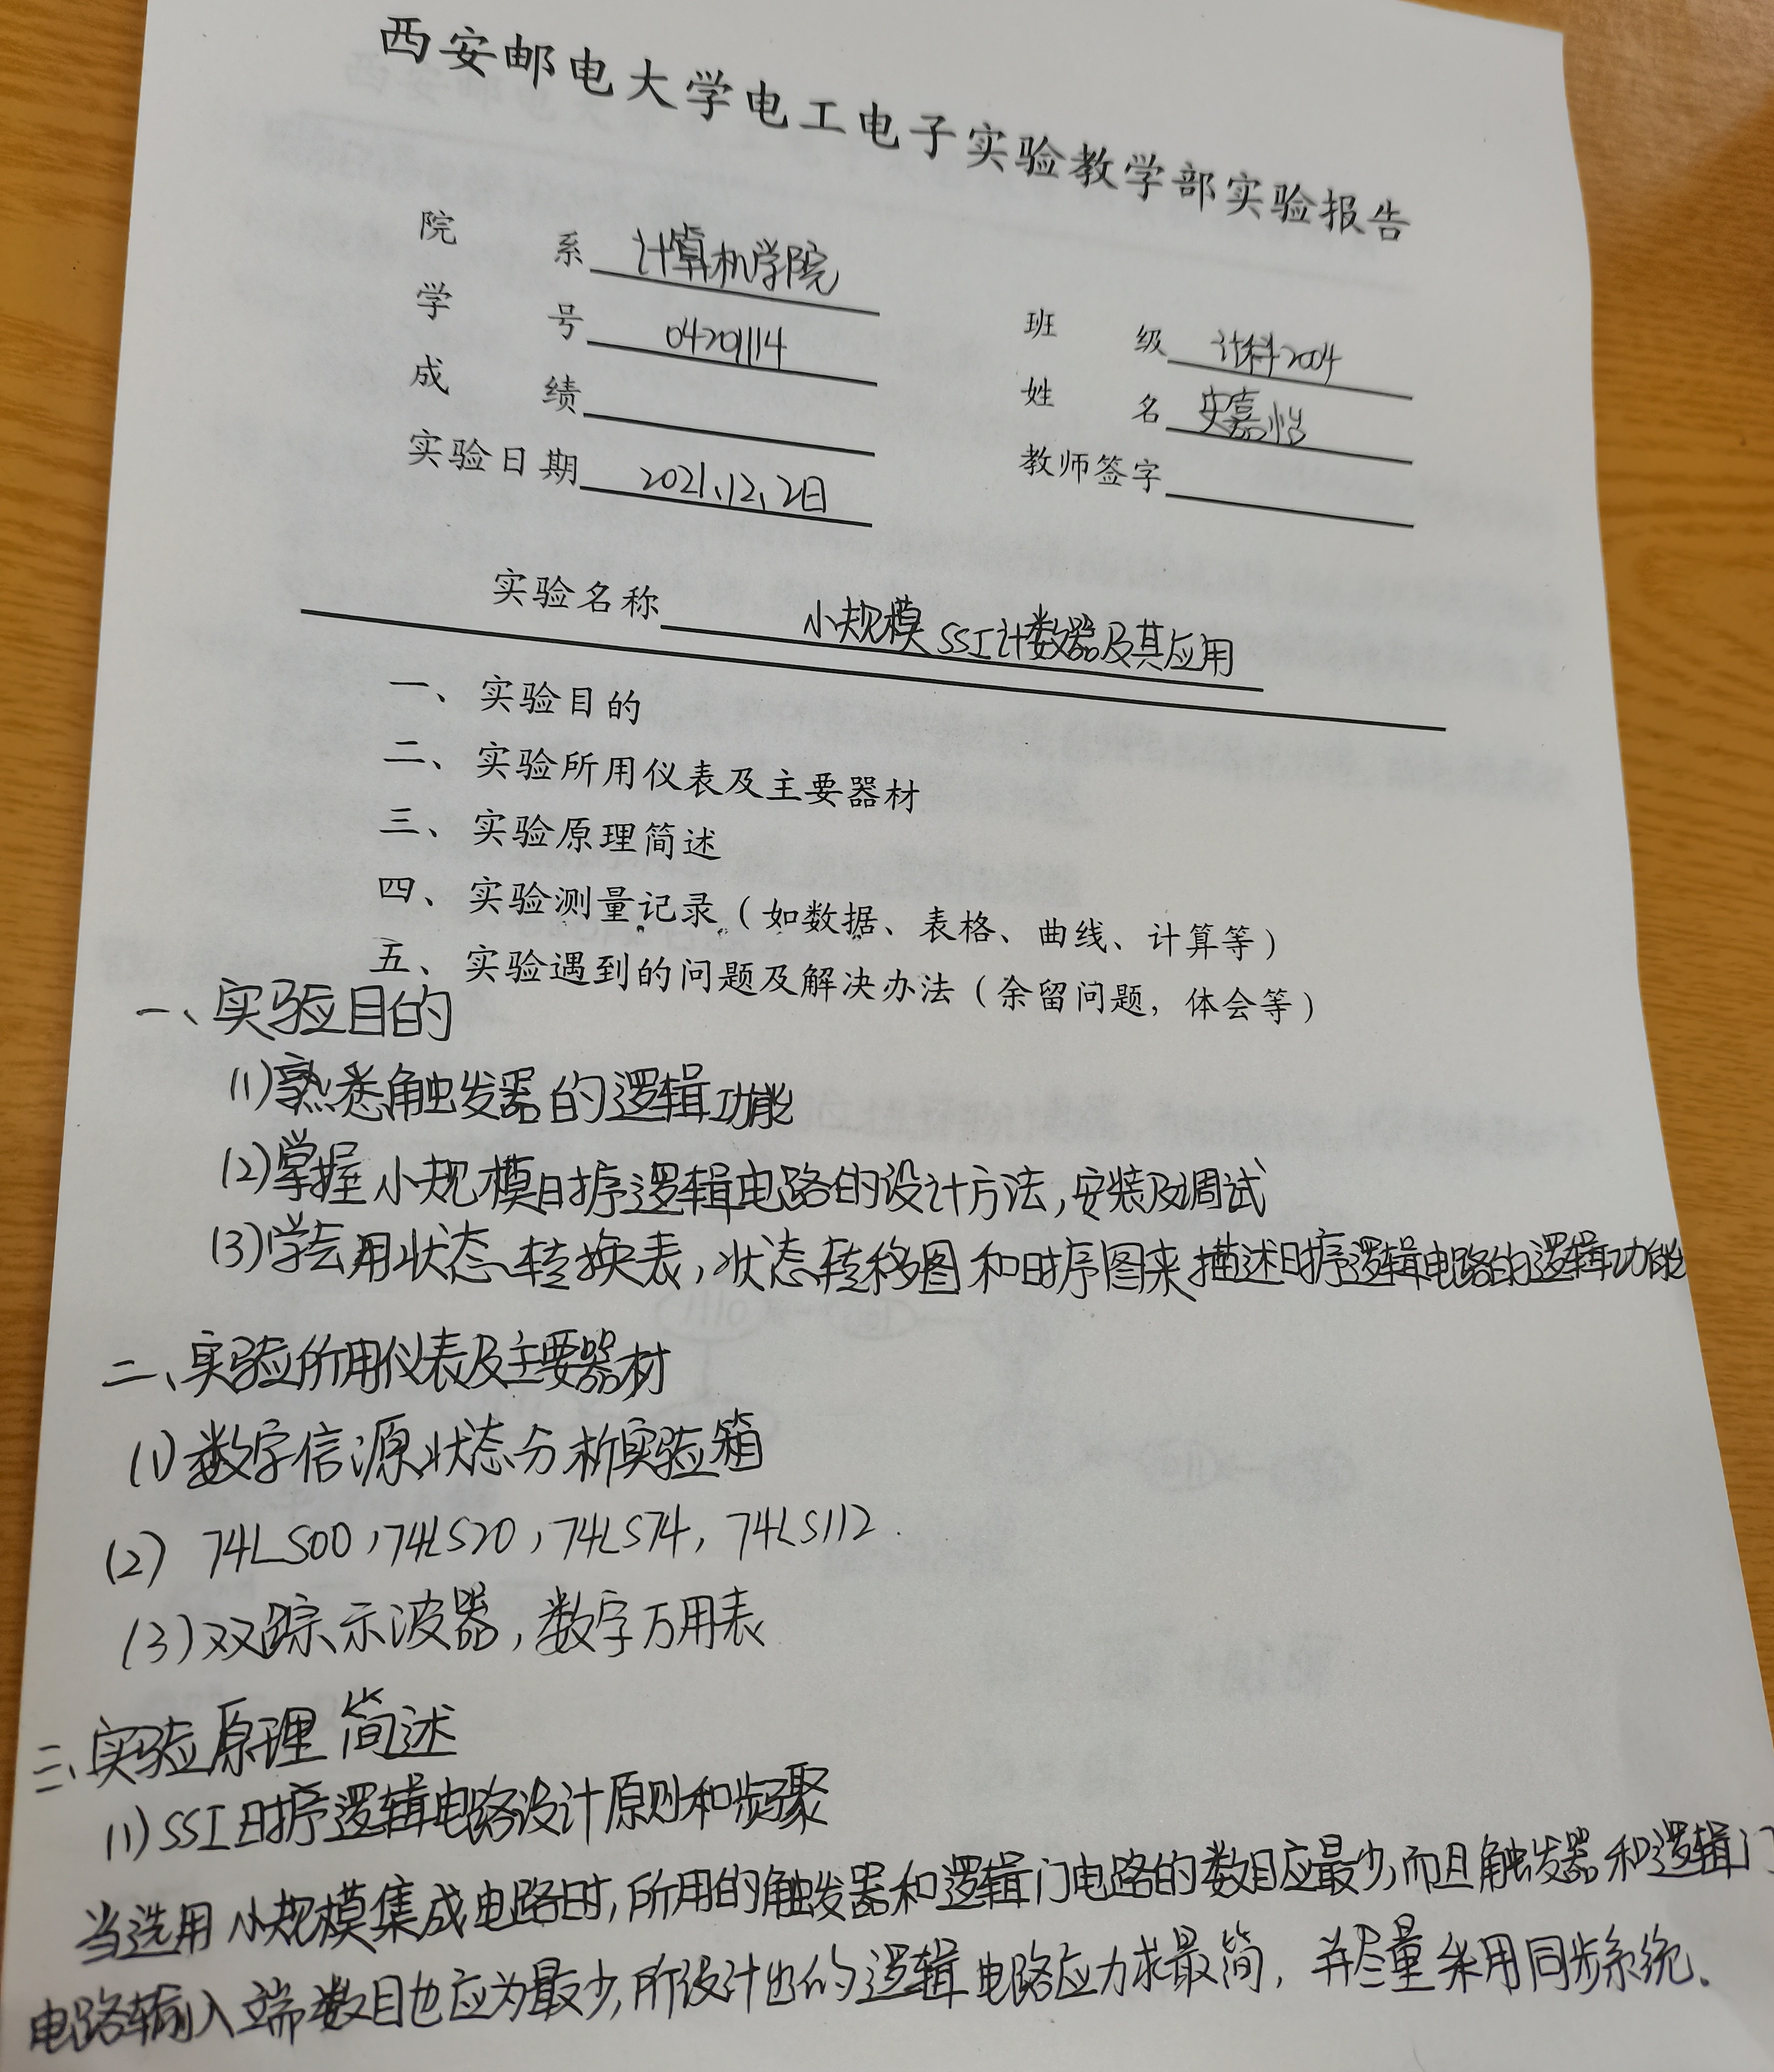 西安邮电大学电工电子实验教学部实验报告
院 系 计算机学院
学 号 04201114 班 级 计科2004
成 绩 姓 名 安嘉怡
实验日期 2021、12、2日 教师签字
实验名称 小规模SSI计数器及其应用
一、实验目的
二、实验所用仪表及主要器材
三、实验原理简述
四、实验测量记录(如数据、表格、曲线、计算等)
五、实验遇到的问题及解决办法(余留问题,体会等)
一、实验目的
(1)熟悉触发器的逻辑功能
(2)掌握小规模时序逻辑电路的设计方法,安装及调试
(3)学会用状态转换表,状态转移图和时序图来描述时序逻辑电路的逻辑功能
二、实验所用仪表及主要器材
(1)数字信源状态分析实验箱
(2) 74LS00,74LS20,74LS74,74LS112.
(3)双踪示波器,数字万用表
三、实验原理简述
(1)SSI时序逻辑电路设计原则和步骤
当选用小规模集成电路时,所用的触发器和逻辑门电路的数目应最少,而且触发器和逻辑门
电路输入端数目也应为最少,所设计出的逻辑电路应力求最简,并尽量采用同步系统.